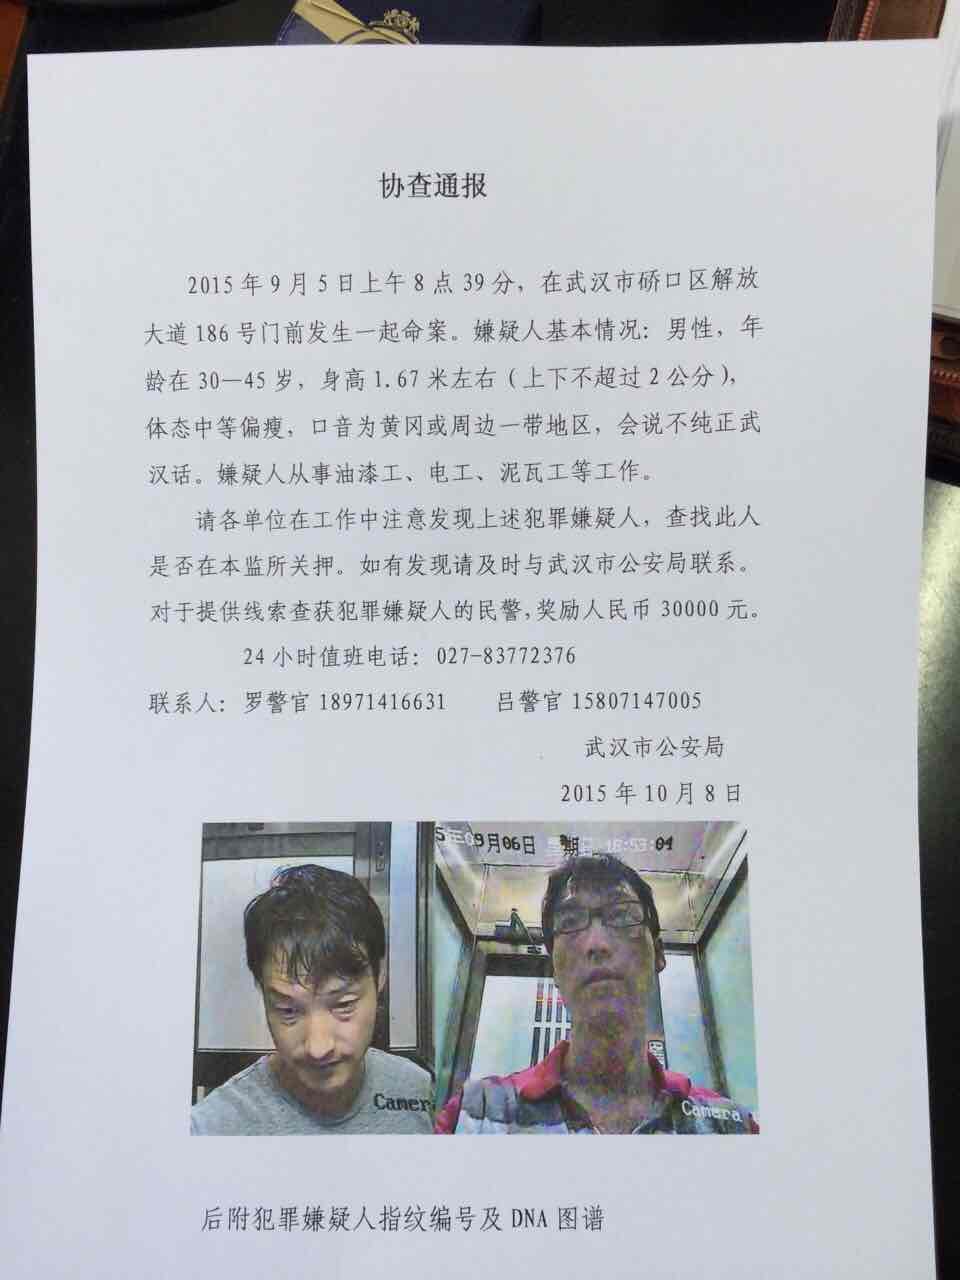 协查通报
2015年9月5日上午8点39分，在武汉市硚口区解放
大道186号门前发生一起命案。嫌疑人基本情况：男性，年
龄在30—45岁，身高1.67米左右（上下不超过2公分），
体态中等偏瘦，口音为黄冈或周边一带地区，会说不纯正武
汉话。嫌疑人从事油漆工、电工、泥瓦工等工作。
请各单位在工作中注意发现上述犯罪嫌疑人，查找此人
是否在本监所关押。如有发现请及时与武汉市公安局联系。
对于提供线索查获犯罪嫌疑人的民警，奖励人民币30000元。
24小时值班电话：027-83772376
联系人：罗警官18971416631 吕警官15807147005
武汉市公安局
2015年10月8日
5年09月06日 星期日 18:53:01
Camera
Camera
后附犯罪嫌疑人指纹编号及DNA图谱